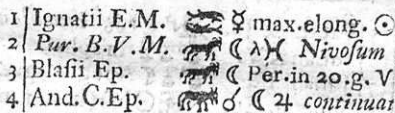 1 Ignatii E.M. ♓ ☿ max.elong. ☉
2 Pur. B.V.M. ☾ λ ♓ Nivosum
3 Blasii Ep. ☾ Per.in 20.g. V
4 And.C.Ep. ♂ ☾ ♃ continuat